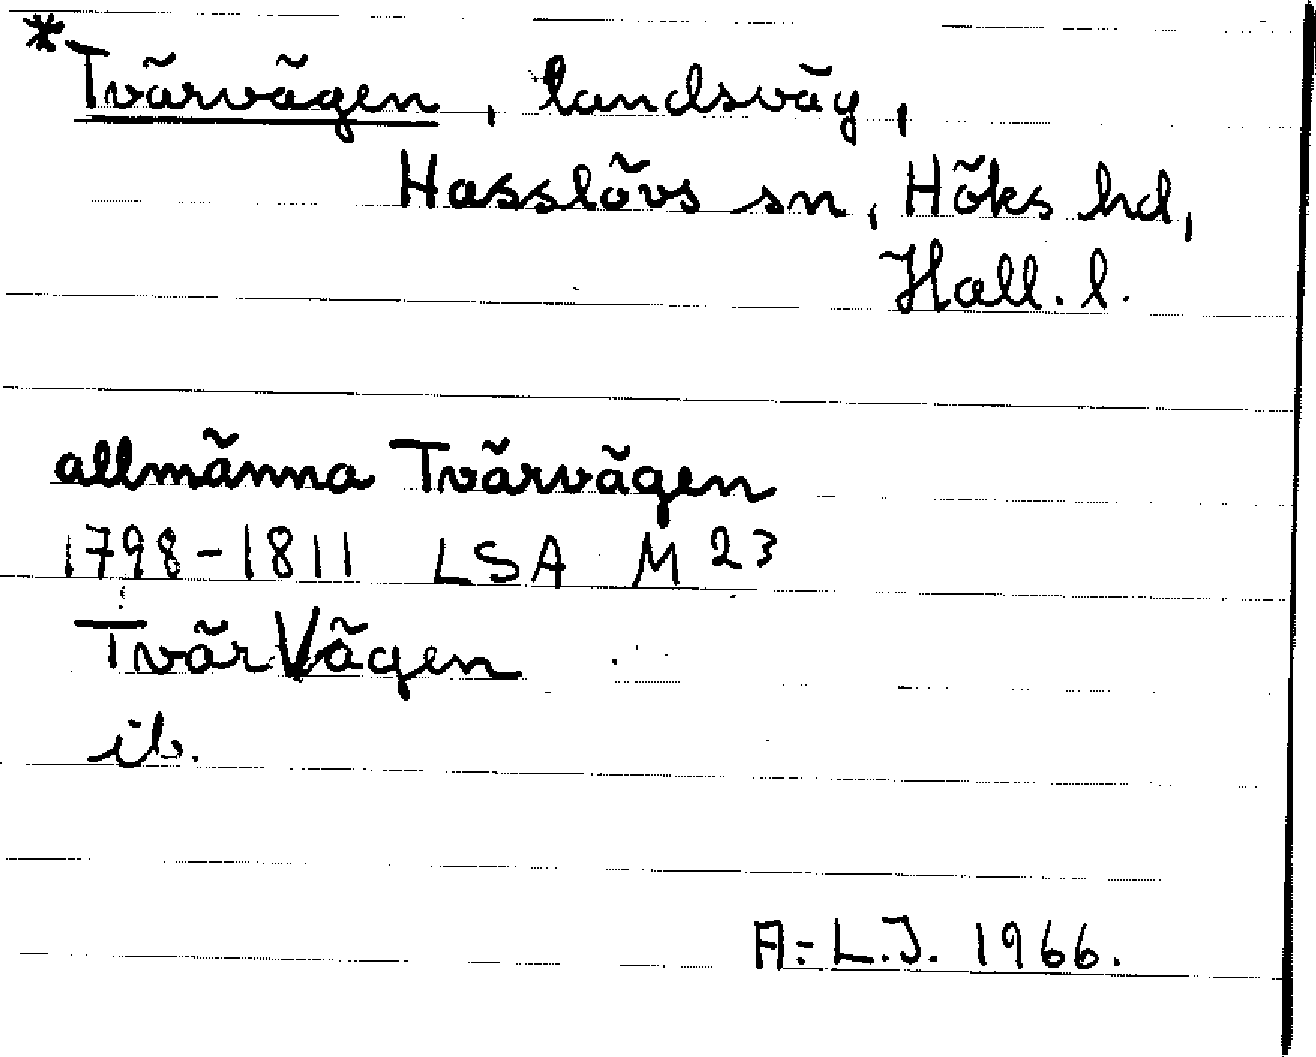 *Tvärvägen, landsväg,
Hasslövs sn, Höks hd,
Hall. l.
allmänna Tvärvägen
1798-1811 LSA M 23
TvärVägen
ib.
A-L.J. 1966.